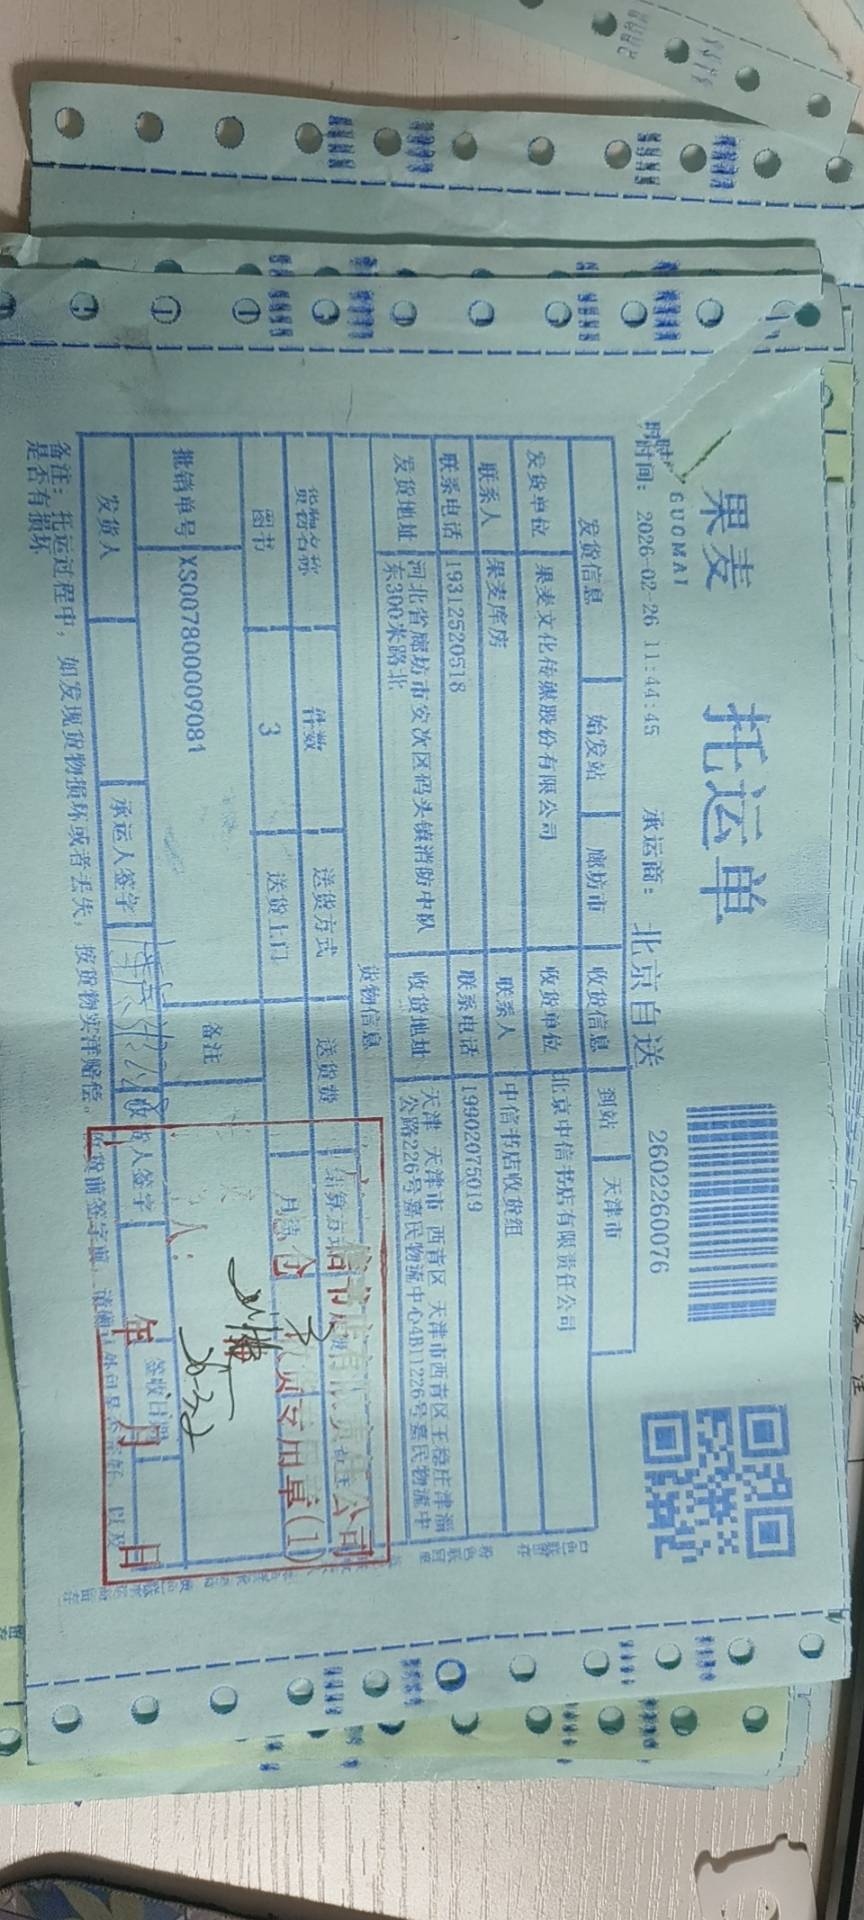 果麦 托运单
GUOMAI
时间: 2026-02-26 11:44:45 承运商: 北京自送 2602260076
发货信息 始发站 廊坊市 收货信息 到站 天津市
发货单位 果麦文化传媒股份有限公司 收货单位 北京中信书店有限责任公司
联系人 果麦库房 联系人 中信书店收货组
联系电话 19312520518 联系电话 19902075019
发货地址 河北省廊坊市安次区码头镇消防中队东300米路北 收货地址 天津 天津市 西青区 天津市西青区王稳庄津淄公路226号嘉民物流中心4B1226号嘉民物流中
货物信息
货物名称 件数 送货方式 送货费 结算方式
图书 3 送货上门 月结
批销单号 XS007800009081 备注
发货人 承运人签字 收货人签字 签收日期
备注: 托运过程中, 如发现货物损坏或者丢失, 按货物实洋赔偿。收货前签字前, 请确认外包是否完好, 以及
是否有损坏
责任公司
收货专用章(1)
人:
年 月 日